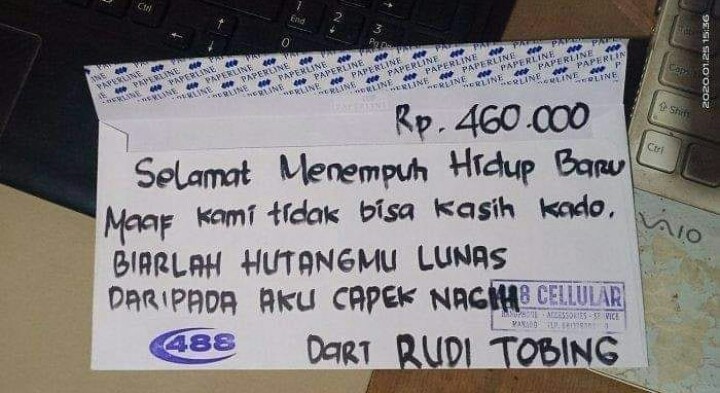 PAPERLINE PAPERLINE PAPERLINE PAPERLINE PAPERLINE
Rp. 460.000
Selamat Menempuh Hidup Baru
Maaf kami tidak bisa kasih kado.
BIARLAH HUTANGMU LUNAS
DARIPADA AKU CAPEK NAGIH
8 CELLULAR
ACCESSORIES - SERVICE
488
Dari RUDI TOBING
VAIO
Ctrl
End
1
2
3
0
Pg Dn
Caps
Shift
Ctrl
2020.01.25 15:36